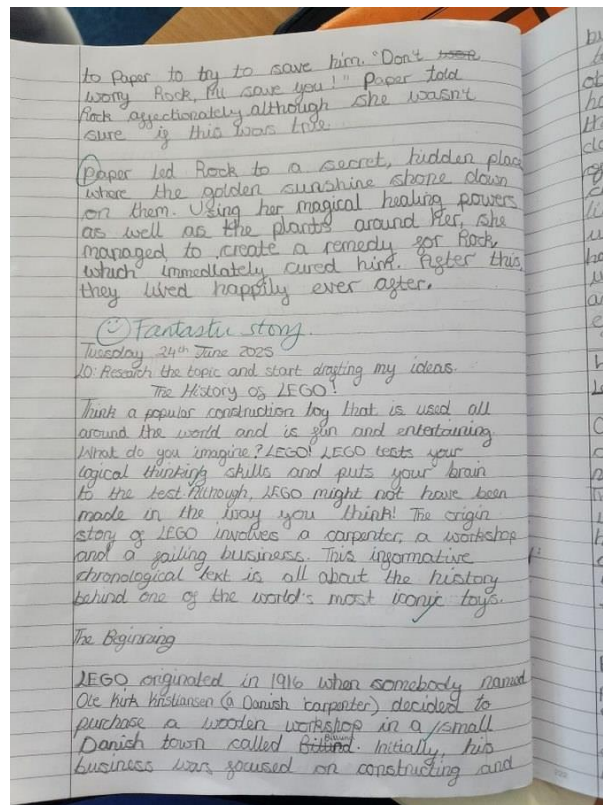 to Paper to try to save him. "Don't
worry Rock, I'll save you!" Paper told
Rock affectionately although she wasn't
sure if this was true.
Paper led Rock to a secret, hidden place
where the golden sunshine shone down
on them. Using her magical healing powers
as well as the plants around her, she
managed to create a remedy for Rock
which immediately cured him. After this,
they lived happily ever after.
Fantastic story.
Tuesday 24th June 2025
LO: Research the topic and start drafting my ideas.
The History of LEGO!
Think a popular construction toy that is used all
around the world and is fun and entertaining.
What do you imagine? LEGO! LEGO tests your
logical thinking skills and puts your brain
to the test. Although, LEGO might not have been
made in the way you think! The origin
story of LEGO involves a carpenter, a workshop
and a failing business. This informative
chronological text is all about the history
behind one of the world's most iconic toys.
The Beginning
LEGO originated in 1916 when somebody named
Ole Kirk Kristiansen (a Danish carpenter) decided to
purchase a wooden workshop in a small
Danish town called Billund. Initially, his
business was focused on constructing and